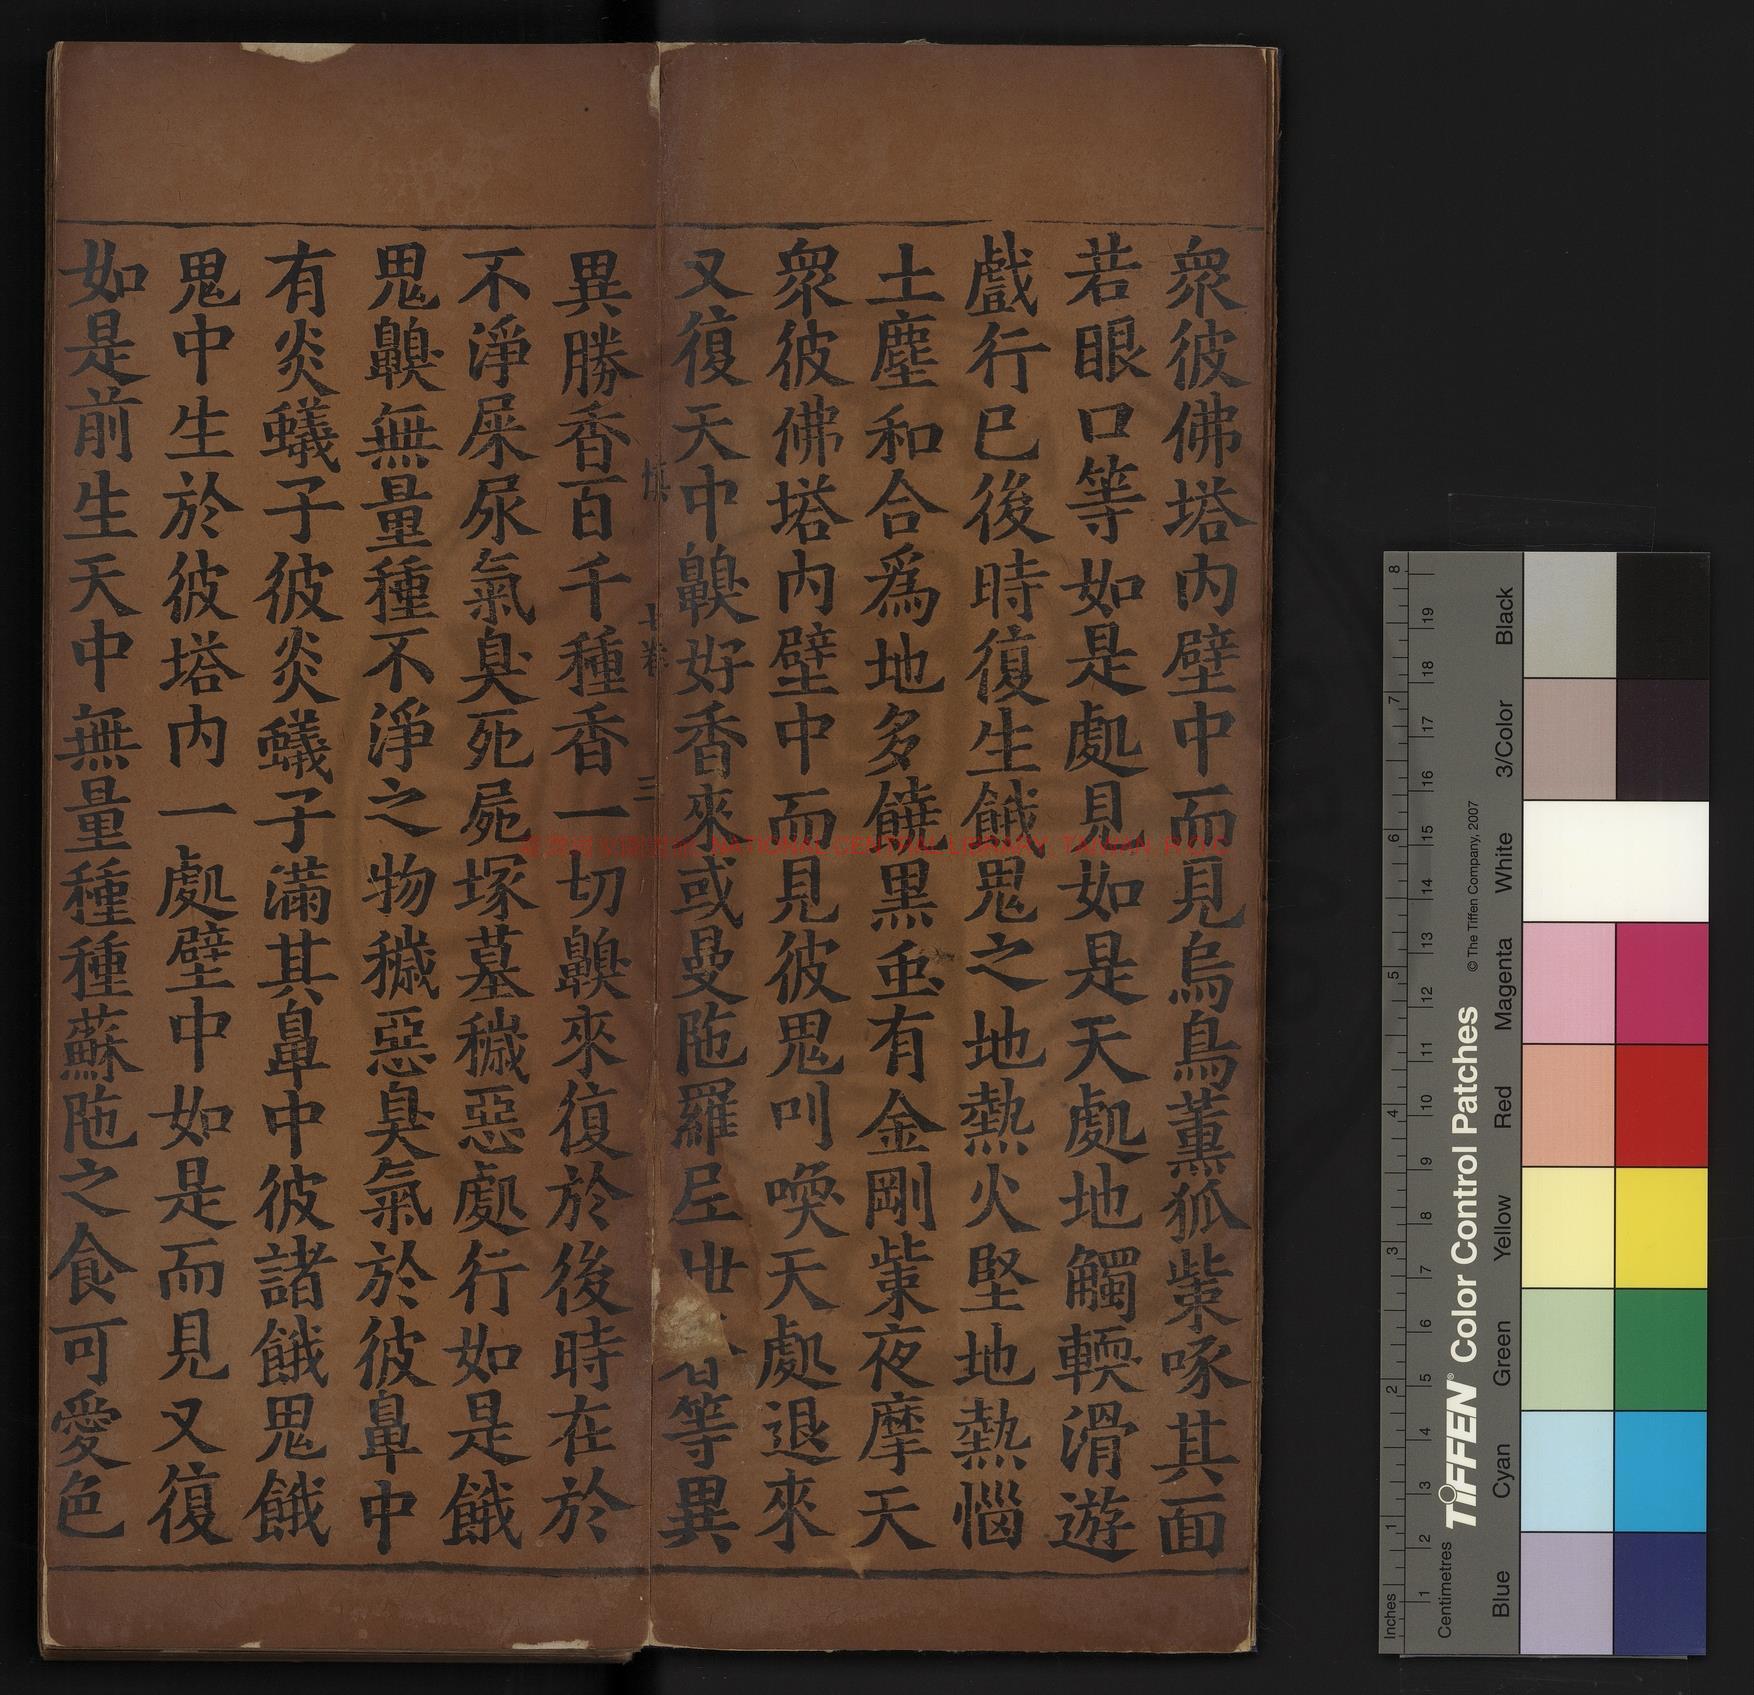 衆彼佛塔内壁中而見烏鳥薰狐㭰啄其面
若眼口等如是處見如是天處地觸輭滑遊
戲行已後時復生餓鬼之地熱火堅地熱惱
土塵和合爲地多饒黑虫有金剛㭰夜摩天
衆彼佛塔内壁中而見彼鬼叫喚天處退來
又復天中齅好香來或曼陁羅居世 香等異
異勝香百千種香一切齅來復於後時在於
不淨屎尿氣臭死屍塚墓穢惡處行如是餓
鬼齅無量種不淨之物穢惡臭氣於彼鼻中
有炎蟻子彼炎蟻子滿其鼻中彼諸餓鬼餓
鬼中生於彼塔内一處壁中如是而見又復
如是前生天中無量種種蘇陁之食可愛色
慎 十卷 三
NATIONAL CENTRAL LIBRARY, TAIWAN, R.O.C.
Inches 1 2 3 4 5 6 7 8
Centimetres 1 2 3 4 5 6 7 8 9 10 11 12 13 14 15 16 17 18 19
TIFFEN® Color Control Patches
© The Tiffen Company, 2007
Blue Cyan Green Yellow Red Magenta White 3/Color Black